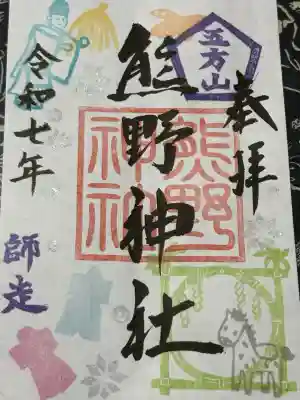 奉拝
五方山
熊野神社
熊野
神社
令和七年
師走